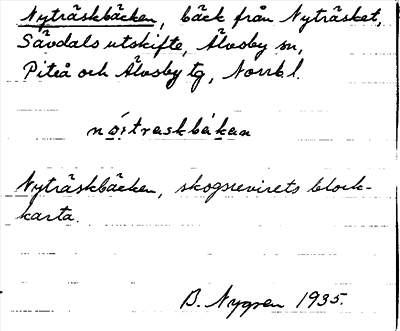 Nyträskbäcken, bäck från Nyträsket,
Sävdals utskifte, Älvsby sn,
Piteå och Älvsby tg, Norrb l.
nó:traskbäkan
Nyträskbäcken, skogsrevirets block-
karta.
B. Nygren 1935.